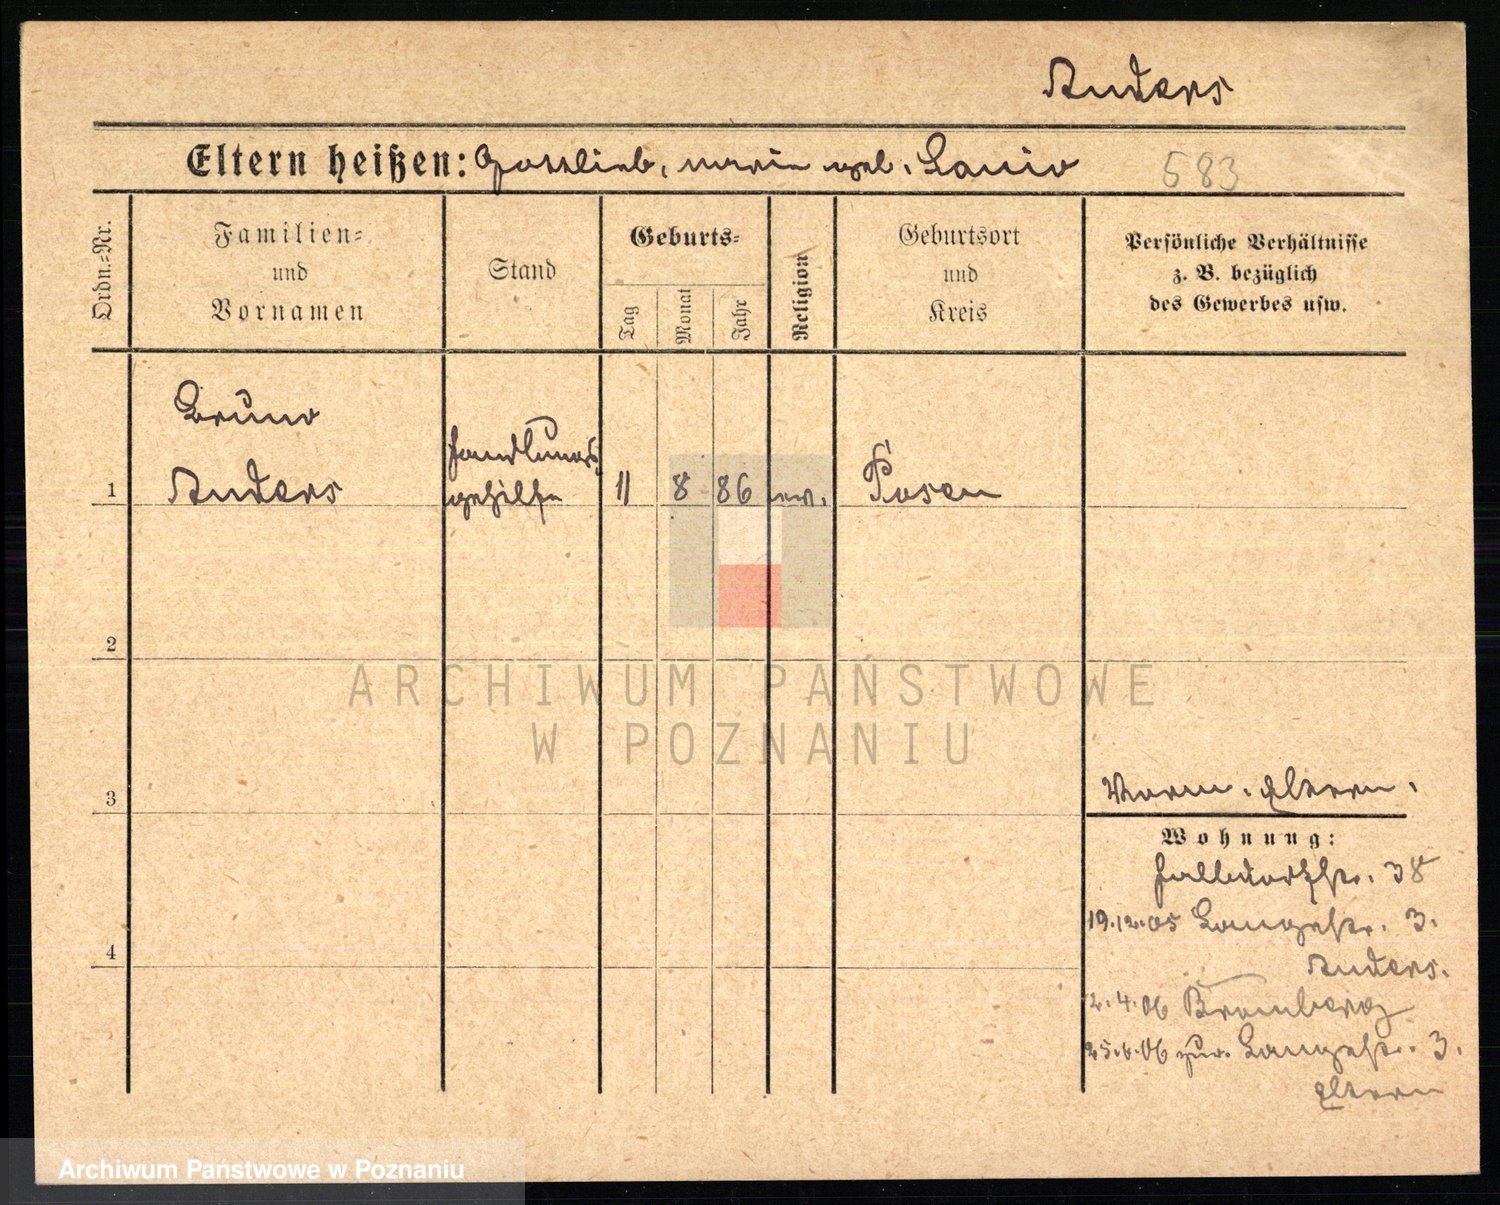 Anders
Eltern heißen: Gottlieb, Marie geb. Lanio
583
Ordn.-Nr.
Familien-
und
Vornamen
Stand
Geburts-
Tag
Monat
Jahr
Religion
Geburtsort
und
Kreis
Persönliche Verhältnisse
z. B. bezüglich
des Gewerbes usw.
Bruno
Anders
Handlungs
gehilfe
1
11
8
86
ev.
Posen
2
3
4
Eltern.
Wohnung:
Halldorfstr. 38
19.12.05 Langestr. 3.
Anders.
2.4.06 Bromberg
Langestr. 3.
Eltern
ARCHIWUM PAŃSTWOWE
W POZNANIU
Archiwum Państwowe w Poznaniu